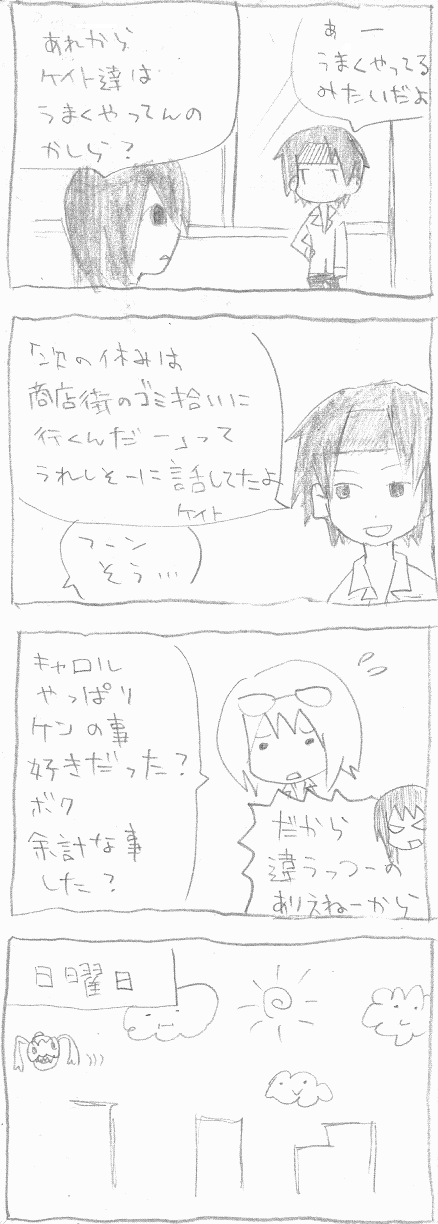 あれから
ケイト達は
うまくやってんの
かしら？
あー
うまくやってる
みたいだよ
「次の休みは
商店街のゴミ拾いに
行くんだー」って
うれしそーに話してたよ
ケイト
フーン
そう…
キャロル
やっぱり
ケンの事
好きだった？
ボク
余計な事
した？
だから
違うっつーの
ありえねーから
日曜日